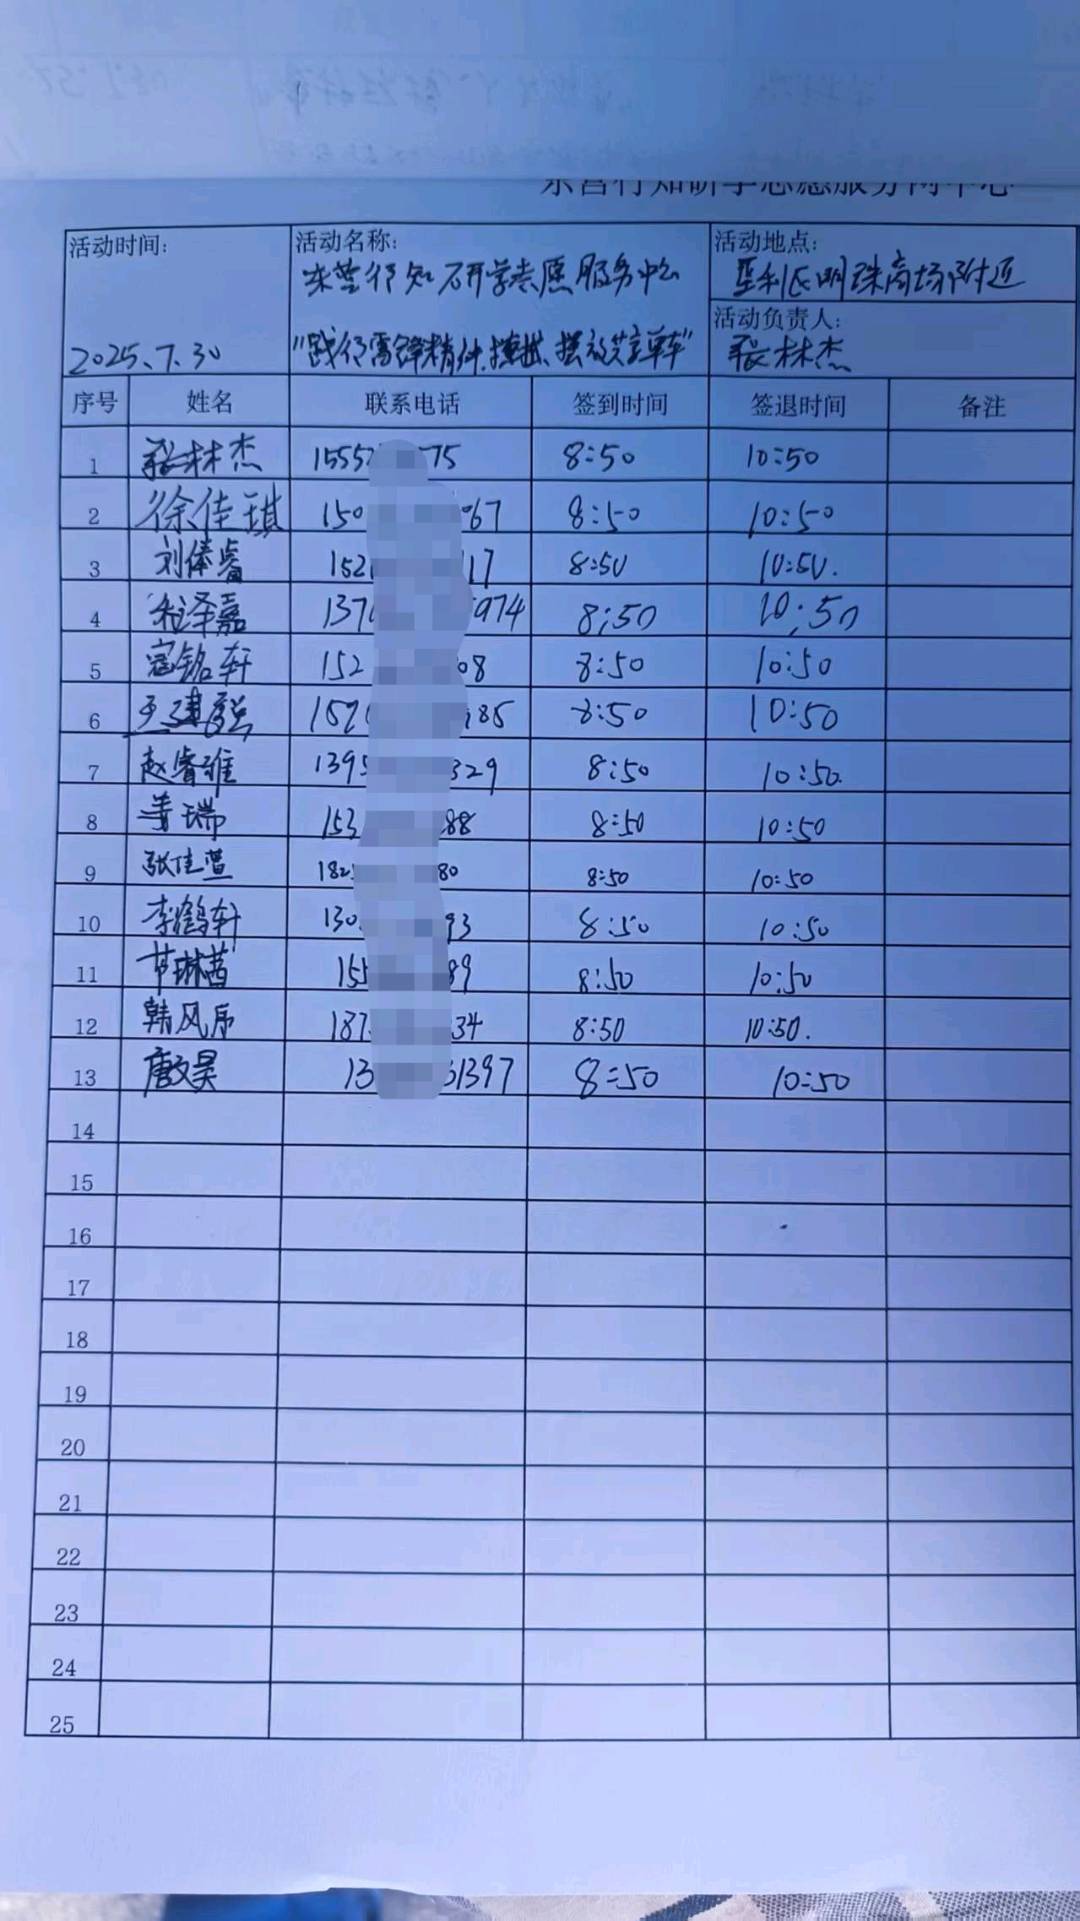 东营行知研学志愿服务网中心
活动时间:
2025.7.30
活动名称:
东营行知研学志愿服务中心
"践行雷锋精神、摆放共享单车"
活动地点:
垦利区明珠商场附近
活动负责人:
张林杰
序号 姓名 联系电话 签到时间 签退时间 备注
1 张林杰 1555 75 8:50 10:50
2 徐佳琪 150 067 8:50 10:50
3 刘俸睿 152 117 8:50 10:50.
4 泽嘉 137 974 8:50 10:50
5 寇铭轩 152 08 8:50 10:50
6 王建 152 85 8:50 10:50
7 赵睿雅 1395 329 8:50 10:50.
8 姜瑞 153 88 8:50 10:50
9 张佳萱 182 80 8:50 10:50
10 李鹤轩 130 93 8:50 10:50
11 琳茜 155 89 8:50 10:50
12 韩风 187 34 8:50 10:50.
13 唐文昊 13 1397 8:50 10:50
14
15
16
17
18
19
20
21
22
23
24
25